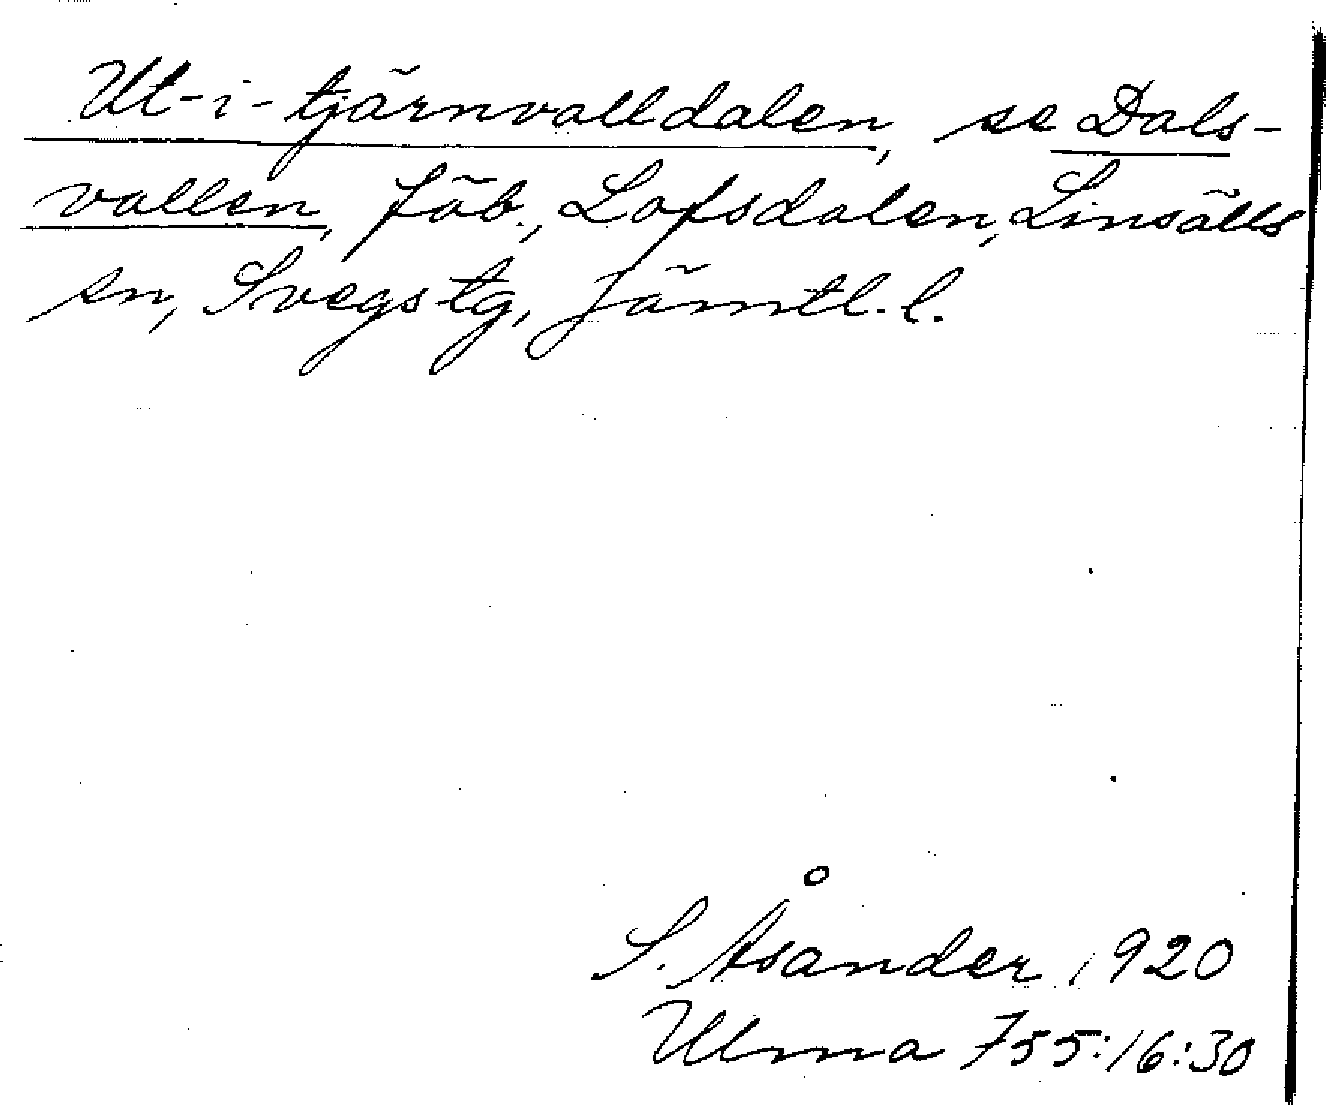 Ut-i-tjärnvalldalen, se Dals-
vallen, fäb., Lofsdalen, Linsälls
sn, Svegs tg, Jämtl. l.
S. Åsander 1920
Ulma 755:16:30